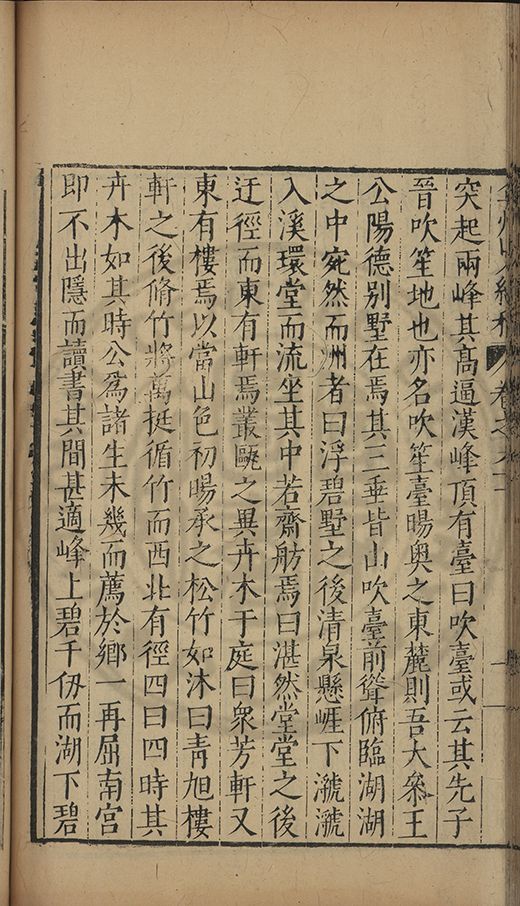 突起兩峰其高逼漢峰頂有臺曰吹臺或云其先子
晉吹笙地也亦名吹笙臺暘奥之東麓則吾大叅王
公陽德别墅在焉其三垂皆山吹臺前聳俯臨湖湖
之中宛然而洲者曰浮碧墅之後清泉懸崕下㶁㶁
入溪環堂而流坐其中若齋舫焉曰湛然堂堂之後
迂徑而東有軒焉叢甌之異卉木于庭曰衆芳軒又
東有樓焉以當山色初暘承之松竹如沐曰青旭樓
軒之後脩竹將萬挺循竹而西北有徑四曰四時其
卉木如其時公爲諸生未幾而薦於鄉一再屈南宫
即不出隱而讀書其間甚適峰上碧千仭而湖下碧